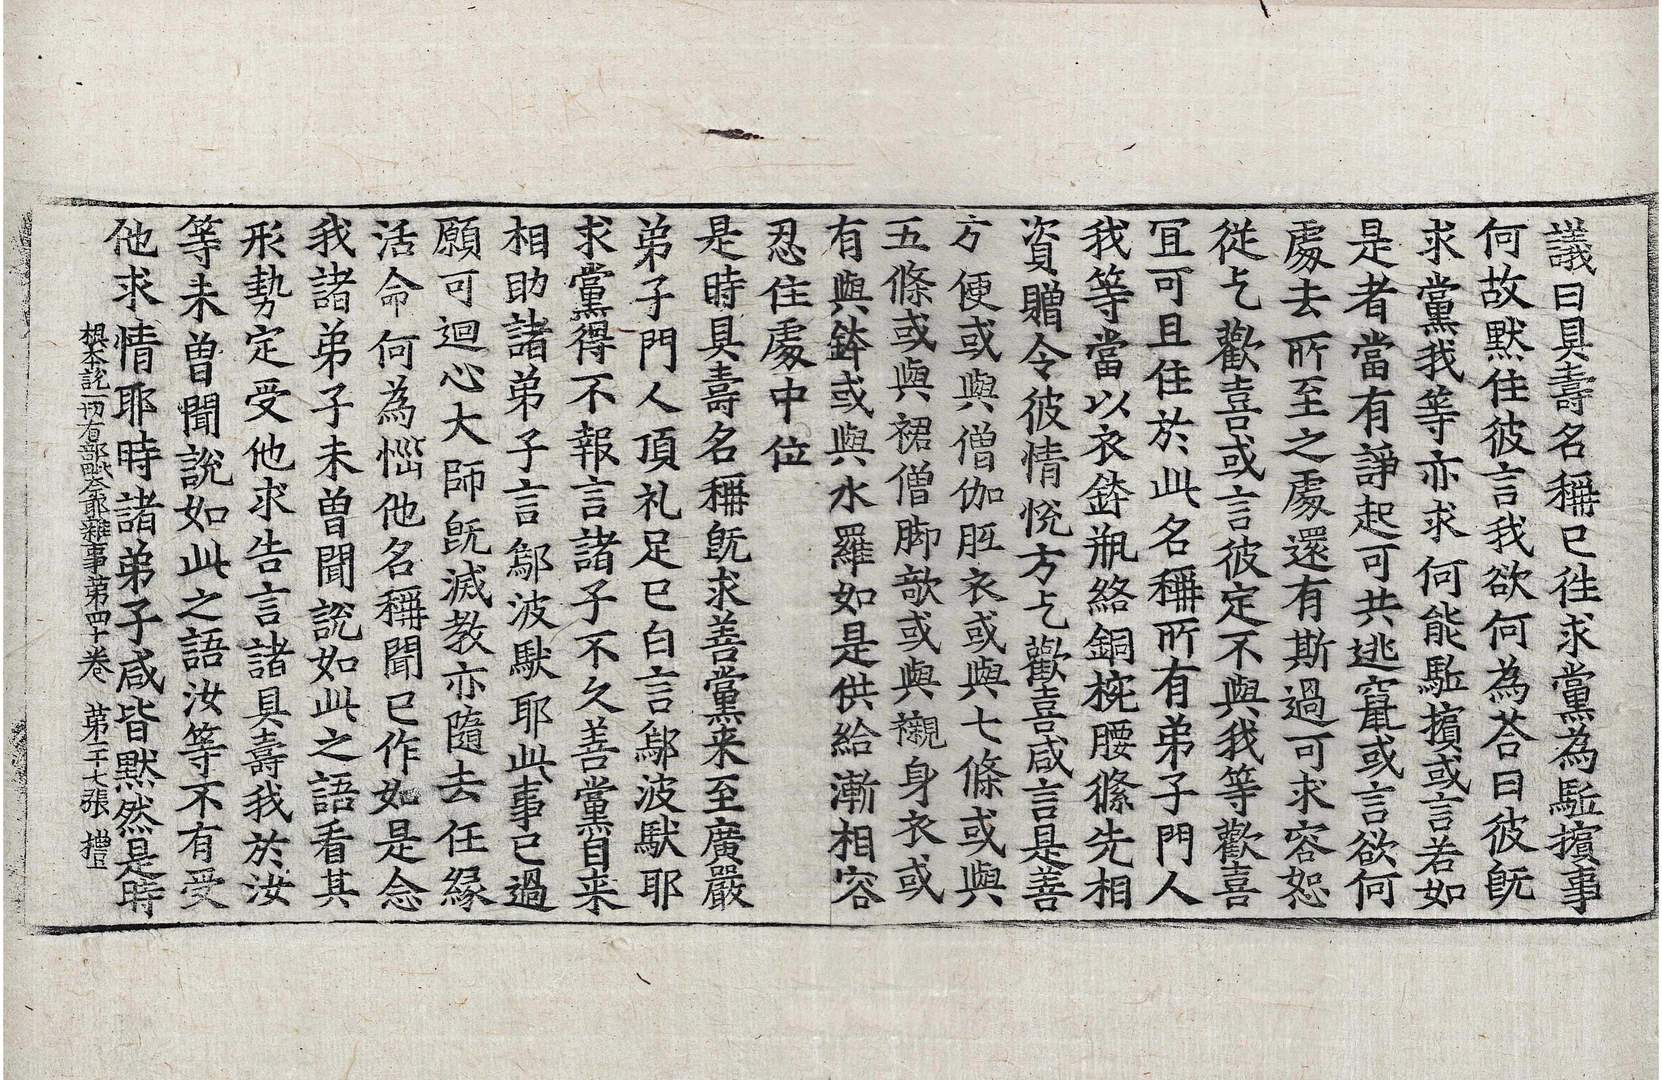 議曰具壽名稱已往求黨為駈擯事
何故默住彼言我欲何為荅曰彼旣
求黨我等亦求何能駈擯或言若如
是者當有諍起可共逃竄或言欲何
處去所至之處還有斯過可求容恕
從乞歡喜或言彼定不與我等歡喜
冝可且住於此名稱所有弟子門人
我等當以衣鉢瓶絡銅椀腰絛先相
資贈令彼情恱方乞歡喜咸言是善
方便或與僧伽胝衣或與七條或與
五條或與裙僧脚敧或與襯身衣或
有與鉢或與水羅如是供給漸相容
忍住處中位
是時具壽名稱旣求善黨来至廣嚴
弟子門人頂礼足已白言鄔波馱耶
求黨得不報言諸子不久善黨自来
相助諸弟子言鄔波馱耶此事已過
願可迴心大師旣滅教亦隨去任緣
活命何為惱他名稱聞已作如是念
我諸弟子未曾聞說如此之語看其
形勢定受他求告言諸具壽我於汝
等未曾聞說如此之語汝等不有受
他求情耶時諸弟子咸皆默然是時
根本說一切有部毗奈耶雜事第四十卷 第二十七張 禮